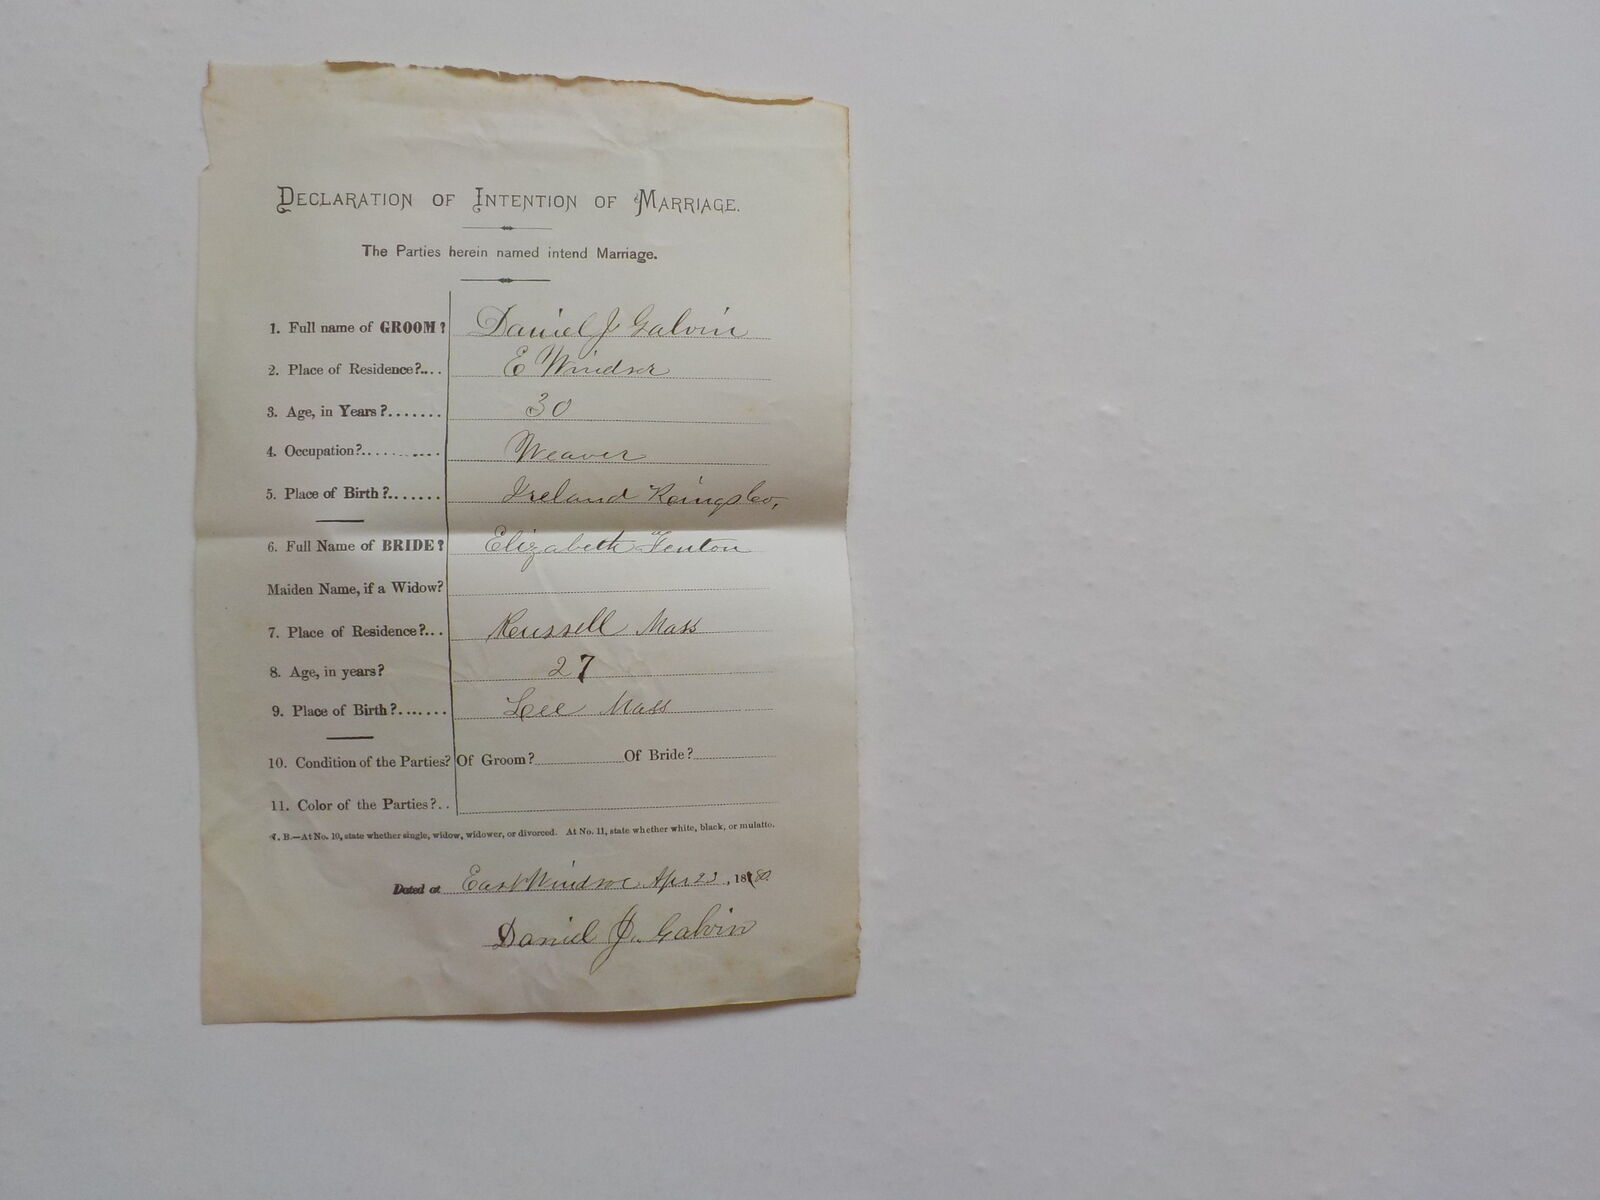 DECLARATION OF INTENTION OF MARRIAGE.
The Parties herein named intend Marriage.
1. Full name of GROOM? Daniel J Galvin
2. Place of Residence?.... E Windsor
3. Age, in Years?....... 30
4. Occupation?.......... Weaver
5. Place of Birth?....... Ireland Kings Co,
6. Full Name of BRIDE? Elizabeth Fenton
Maiden Name, if a Widow?
7. Place of Residence?... Russell Mass
8. Age, in years? 27
9. Place of Birth?....... Lee Mass
10. Condition of the Parties? Of Groom? Of Bride?
11. Color of the Parties?..
N. B.—At No. 10, state whether single, widow, widower, or divorced. At No. 11, state whether white, black, or mulatto.
Dated at East Windsor Apr 22, 1880.
Daniel J. Galvin